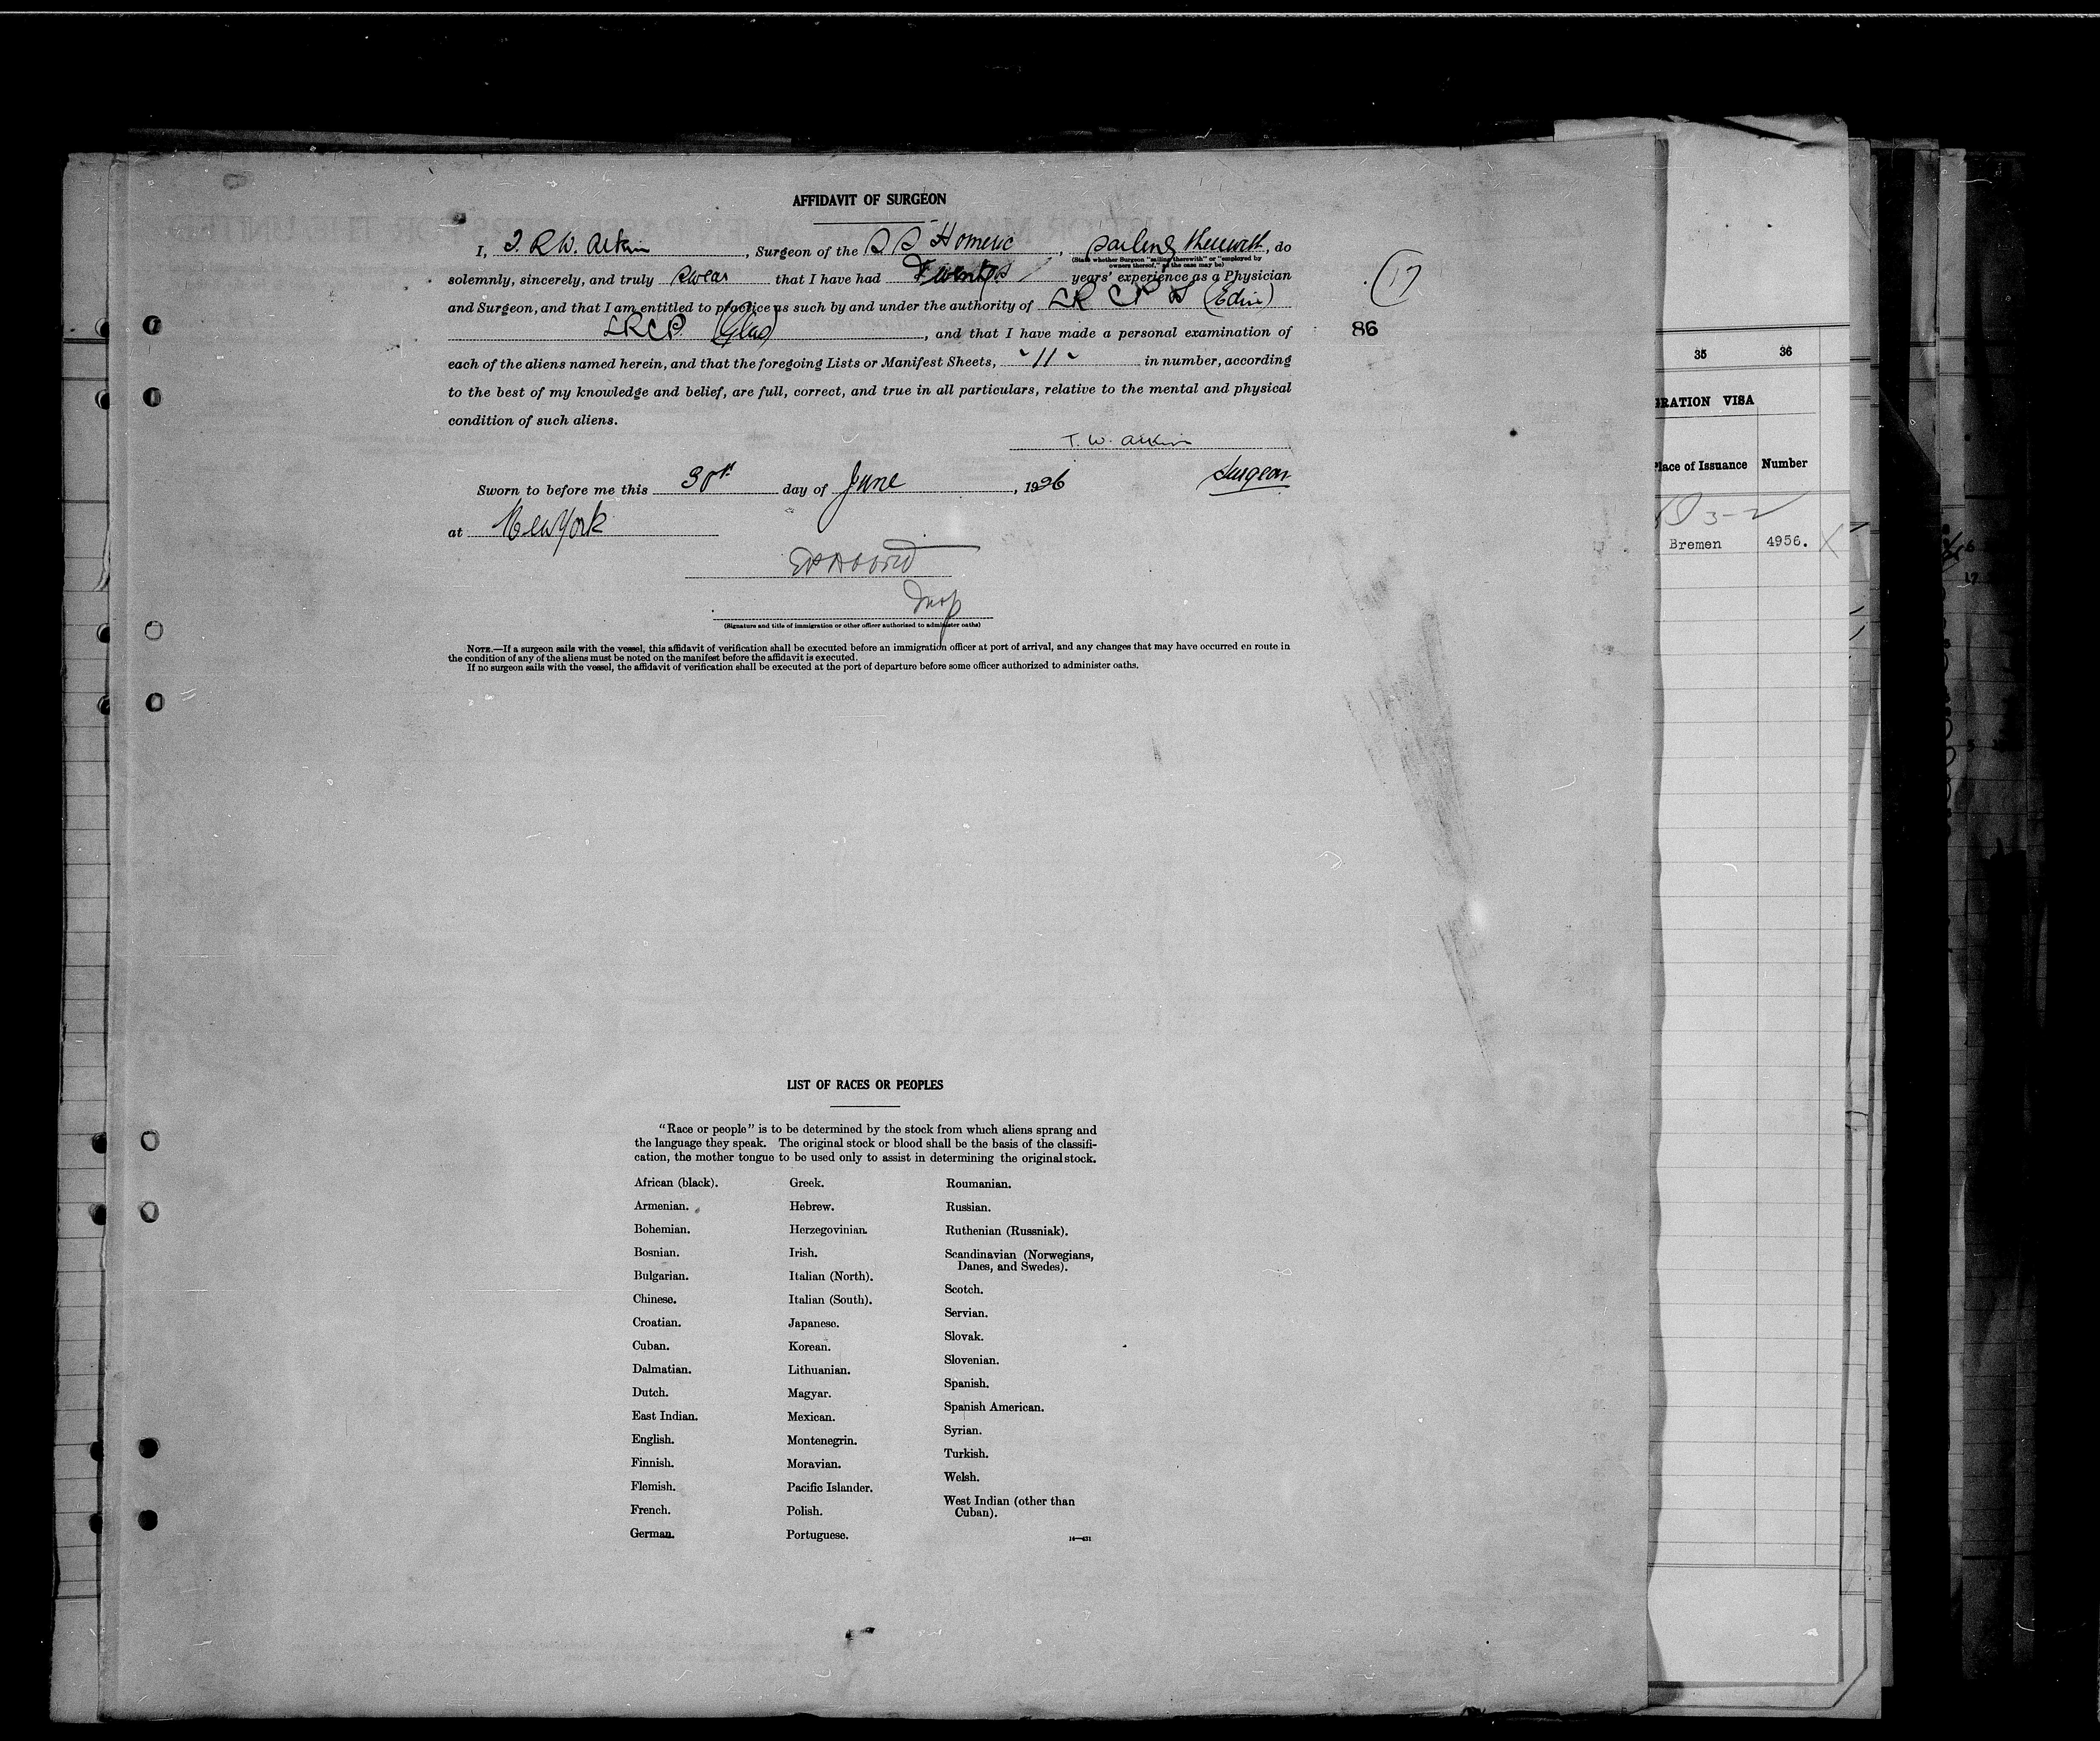 AFFIDAVIT OF SURGEON
I, T. R. W. Aitkin, Surgeon of the S S Homeric, Sailing therewith, do
(State whether Surgeon "sailing therewith" or "employed by
owners thereof," as the case may be)
solemnly, sincerely, and truly swear that I have had Twenty years' experience as a Physician
and Surgeon, and that I am entitled to practice as such by and under the authority of LR CP S (Edin)
LRCP. (Glas), and that I have made a personal examination of
each of the aliens named herein, and that the foregoing Lists or Manifest Sheets, "11" in number, according
to the best of my knowledge and belief, are full, correct, and true in all particulars, relative to the mental and physical
condition of such aliens.
T. W. Aitkin
Surgeon
Sworn to before me this 30th day of June, 1926
at New York
(Signature and title of immigration or other officer authorized to administer oaths)
NOTE.—If a surgeon sails with the vessel, this affidavit of verification shall be executed before an immigration officer at port of arrival, and any changes that may have occurred en route in
the condition of any of the aliens must be noted on the manifest before the affidavit is executed.
If no surgeon sails with the vessel, the affidavit of verification shall be executed at the port of departure before some officer authorized to administer oaths.
(17)
86
LIST OF RACES OR PEOPLES
"Race or people" is to be determined by the stock from which aliens sprang and
the language they speak. The original stock or blood shall be the basis of the classifi-
cation, the mother tongue to be used only to assist in determining the original stock.
African (black).
Armenian.
Bohemian.
Bosnian.
Bulgarian.
Chinese.
Croatian.
Cuban.
Dalmatian.
Dutch.
East Indian.
English.
Finnish.
Flemish.
French.
German.
Greek.
Hebrew.
Herzegovinian.
Irish.
Italian (North).
Italian (South).
Japanese.
Korean.
Lithuanian.
Magyar.
Mexican.
Montenegrin.
Moravian.
Pacific Islander.
Polish.
Portuguese.
Roumanian.
Russian.
Ruthenian (Russniak).
Scandinavian (Norwegians,
Danes, and Swedes).
Scotch.
Servian.
Slovak.
Slovenian.
Spanish.
Spanish American.
Syrian.
Turkish.
Welsh.
West Indian (other than
Cuban).
14—431
35 36
GRATION VISA
Place of Issuance Number
3-2
Bremen 4956.